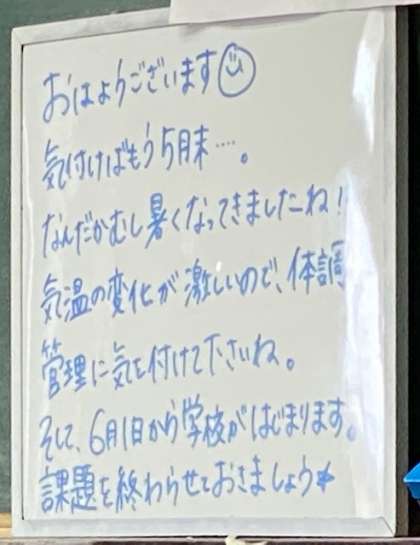 おはようございます☺
気付けばもう5月末…。
なんだかむし暑くなってきましたね!
気温の変化が激しいので、体調
管理に気を付けて下さいね。
そして、6月1日から学校がはじまります。
課題を終わらせておきましょう☆